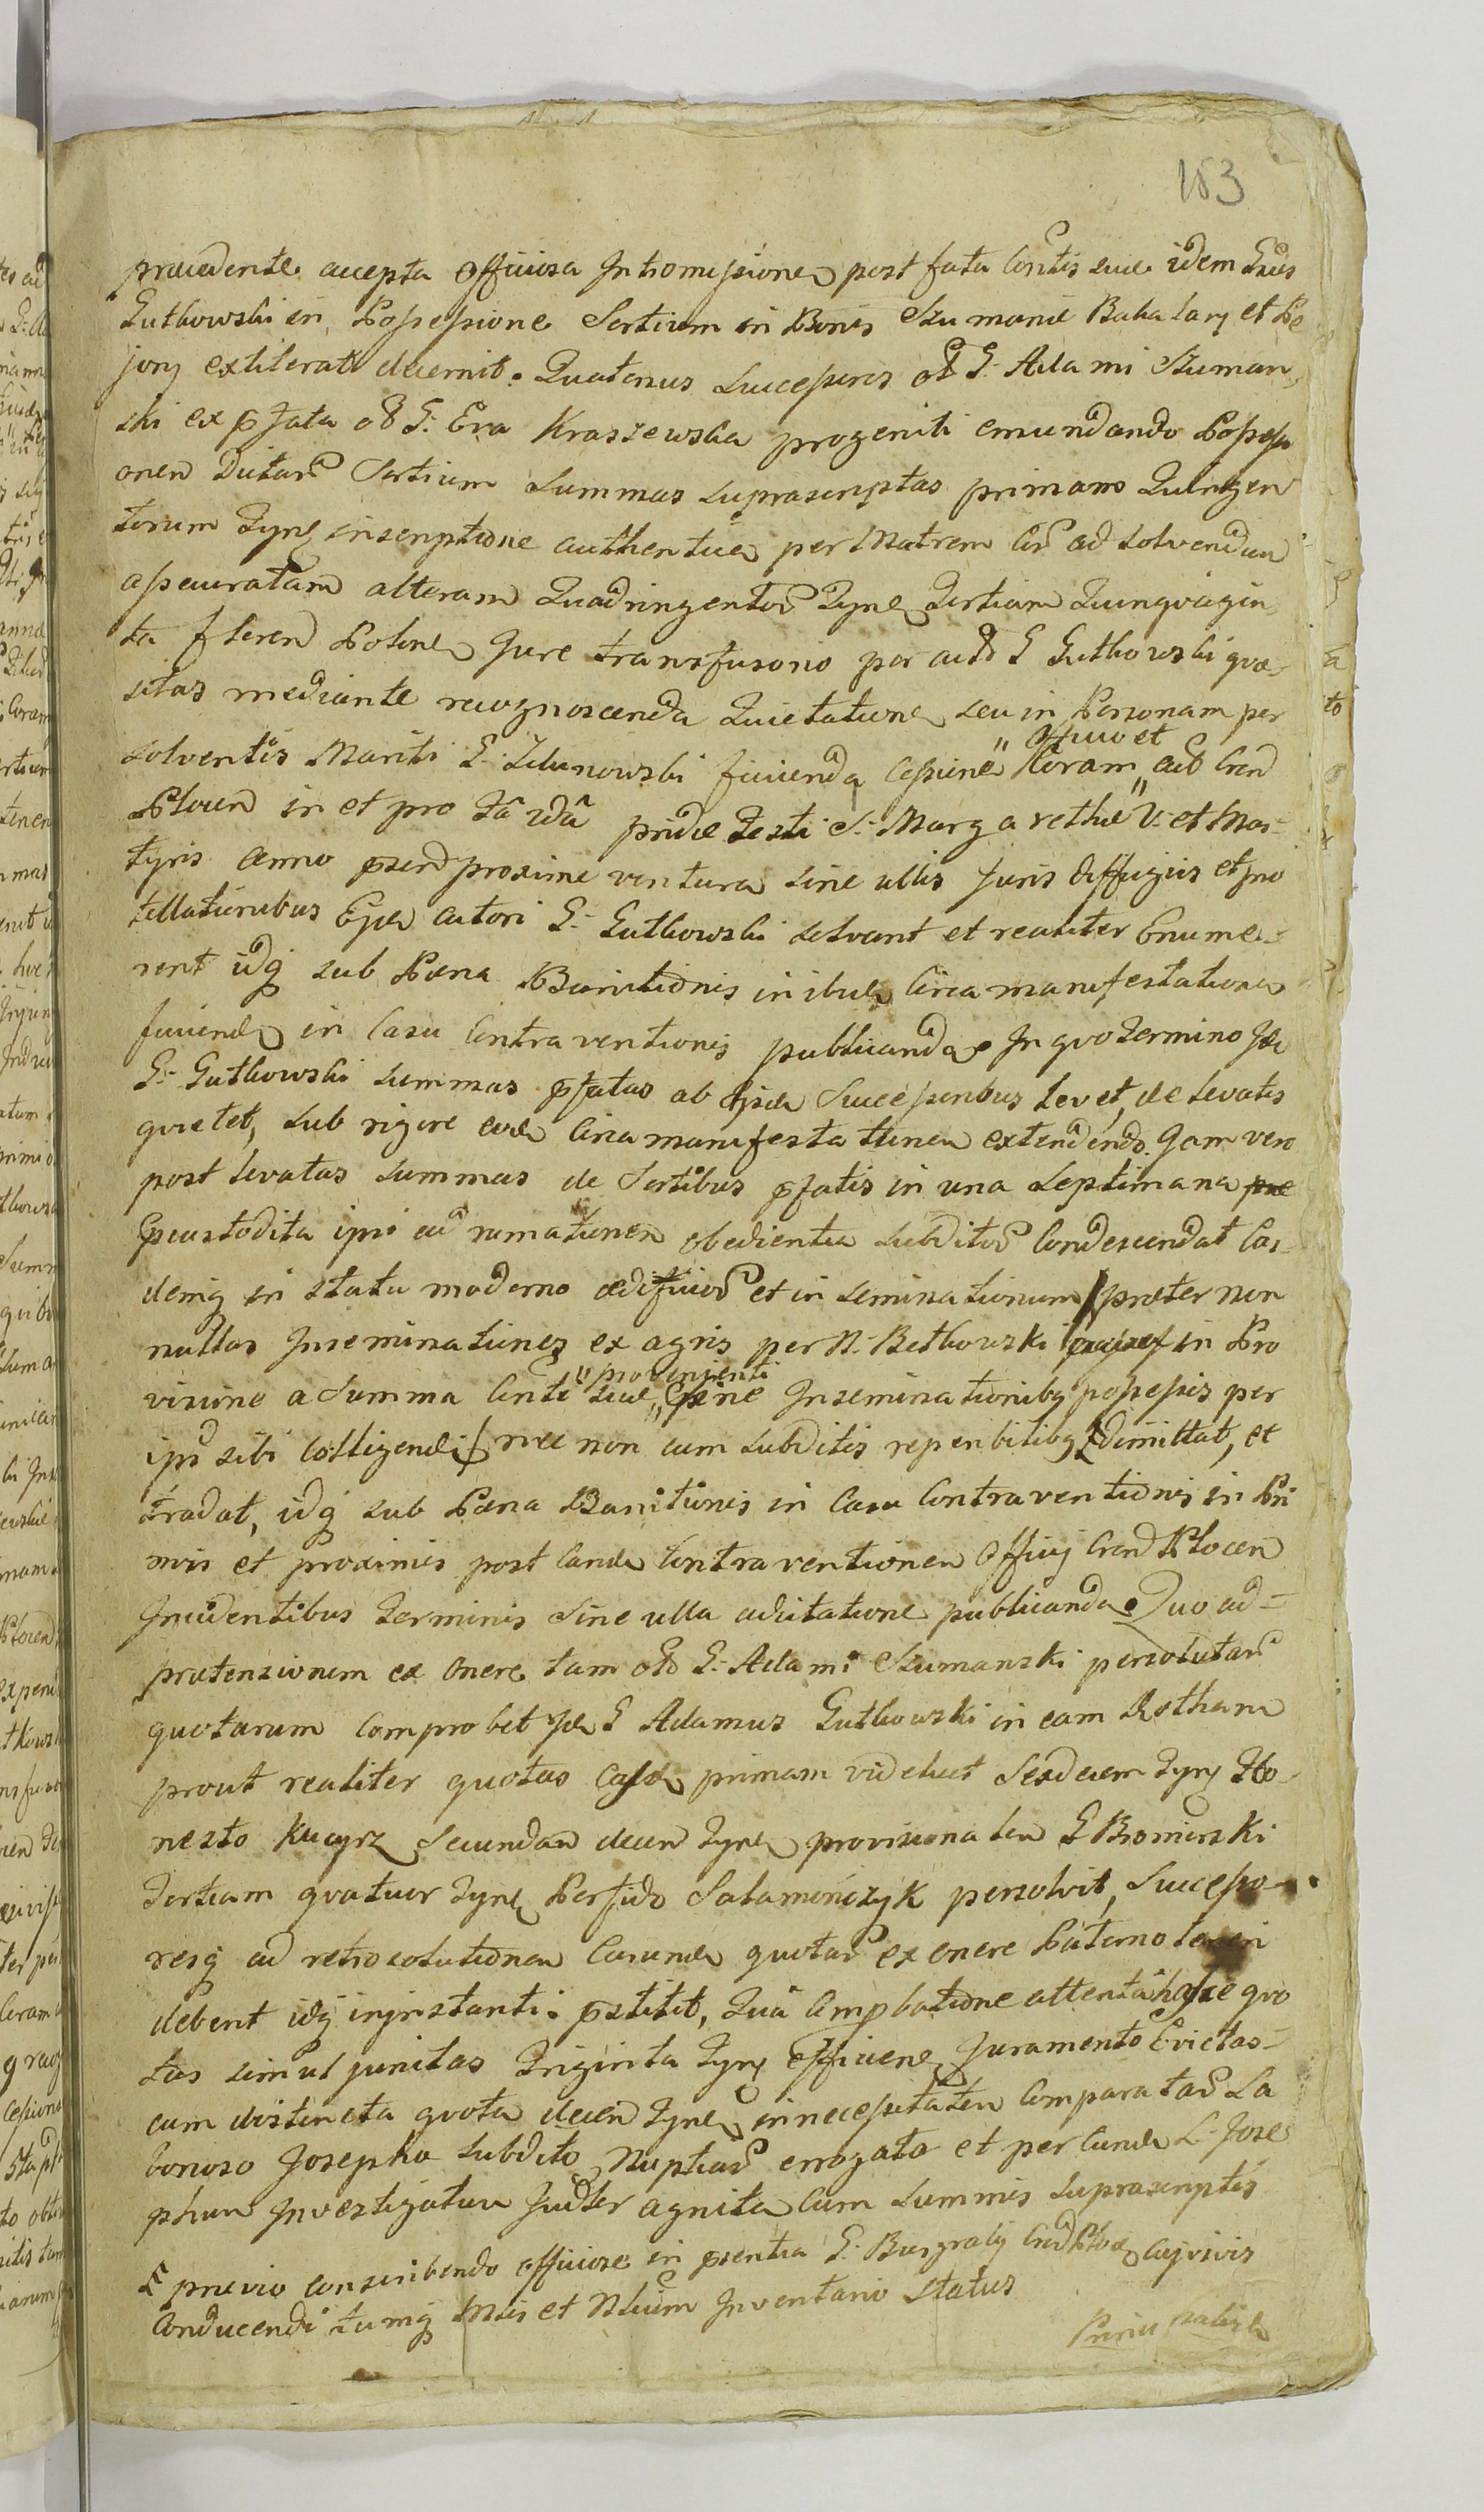 163
præcedente accepta officiosa Intromissione post fata Contis suæ idem Gnus
Gutkowski in Possessione Sortium in Bonis Szumanie Bakalary et Pe
jory extiterat decernit. Quatenus Successores olt G. Adami Szuman
ski ex pfata olt G. Eva Kraszewska progeniti emundando Possessi
onem dictarum Sortium Summas suprascriptas primam Quingen
torum Tynf inscriptione authentica per Matrem ad solvendum
assecuratam alteram Quadringentor Tynf Tertiam Quinquagin
ta floren Polonel Jure transfusorio per actd G Gutkowski quæ-
sitas mediante recognoscenda Quietatione seu in Personam per
solventis Mariti G. Zelunowski fiienda Cessione "Coram" actd Cren
Officio et
Plocen in et pro pridie Festi S. Margarethæ V. et Mar-
tyris Anno psend proxime ventura sine ullis Juris diffugiis et pro
tellationibus actori G. Gutkowski solvant et realiter Enume-
rent idq sub Pæna Banitionis inibidem Circa manifestationem
fiiende in Casu Contraventionis publicanda. In quo Termino
G. Gutkowski summas pfatas ab Successoribus levet, de levatis
quietet, sub rigore Circa manifestationem extendendo. Jam vero
post levatas summas de Sortibus pfatis in una Septimana
ipsi obedientia subditor Condescendat Eas
demq in statu moderno ædificior et in seminationum præter non
nullas Inseminationes ex agris per N. Betkowski in Pro
visione a Summa suæ Inseminationibq possessis per
"provenienti
ipsd sibi colligendi nec non cum subditis reperibilibq dimittat, et
tradat, idq sub Pæna Banitionis in Casu Contraventionis in Pri
mis et proximis post Eande Contraventionem Officij Cren Plocen
Incidentibus Terminis Sine ulla adcitatione publicanda. Quo ad-
prætensionem ex onere tam olt G. Adami Szumanski persolutar
quotarum Comprobet G Adamus Gutkowski in eam Rotham
prout realiter quotas primam videlicet Sexdecem Tynf Ho-
nesto Kucyrz Secundam decem Tynf provisionalem G Bromirski
Tertiam quatuor Tynf Perfido Salamończyk persolvit, Successo-
resq ad retrosolutionem Earunde quotar ex onere Paterno
debent idq injnstanti pstitit, Qua Compbatione attenta quo
tas simul junitas Triginta Tynf efficiene Juramento Evictas-
cum distincta quota decem Tynf in necessitatem Comparatar La
borioso Josepho subdito Nuptiar erogata et per Eunde L. Jose
phum Investigatum Judter agnita Cum summis suprascriptis
prævio conscribendo officiose in psentia G. Burgrabij Cren Ploc Cujusvis
Conducendi tumq Mtis et Nlium Inventario Status